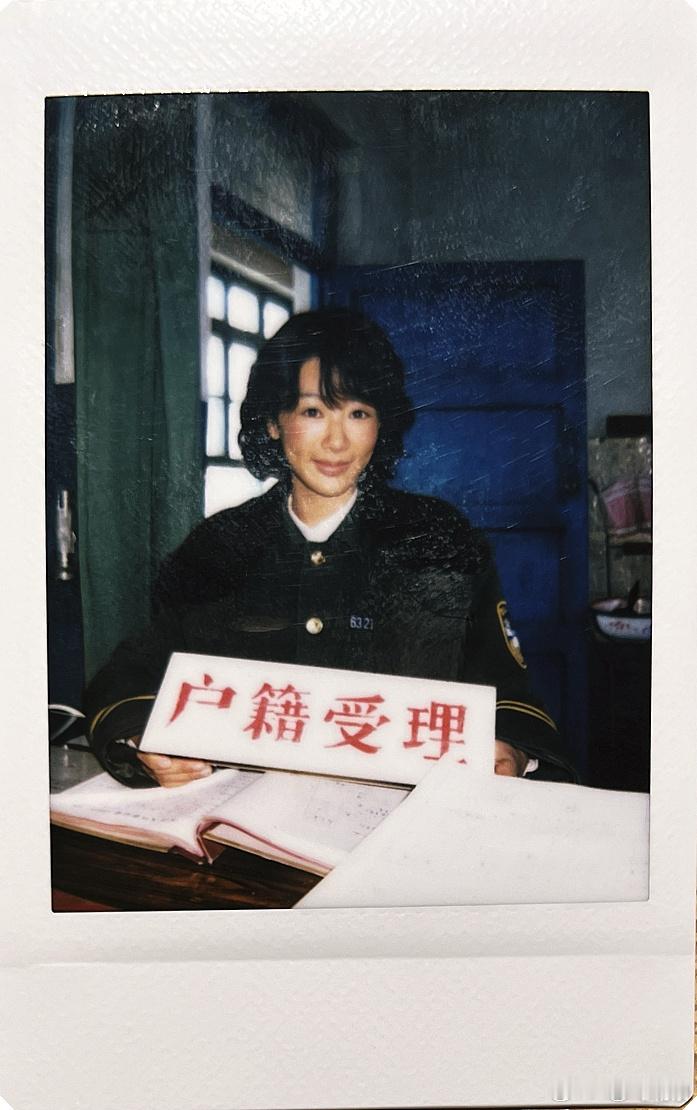 6321
户籍受理